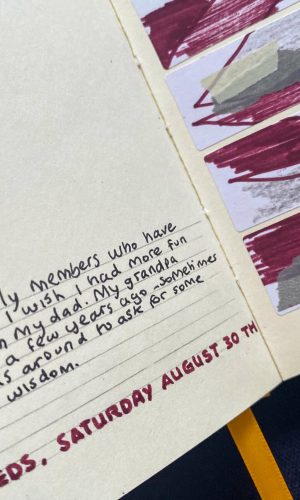 ly members who have
I wish I had more fun
my dad. My grandpa
a few years ago - sometimes
around to ask for some
wisdom.
EDS, SATURDAY AUGUST 30TH